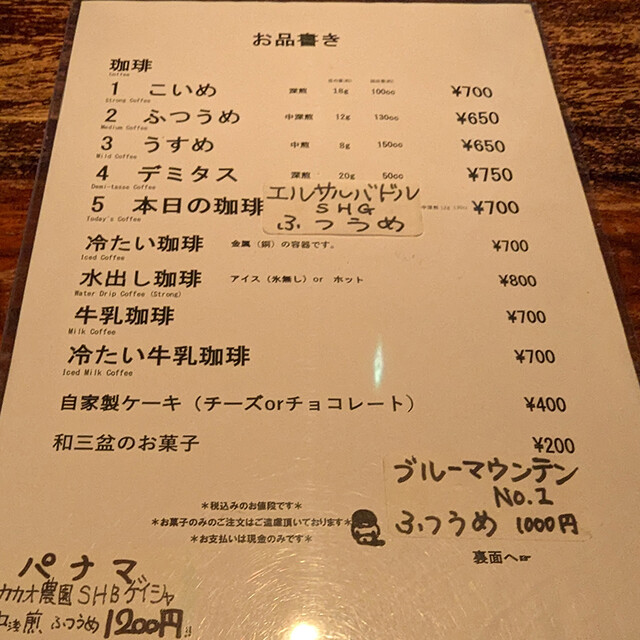 お品書き
珈琲
Coffee
1 こいめ 深煎 16g 100cc ¥700
Strong Coffee
2 ふつうめ 中深煎 12g 130cc ¥650
Medium Coffee
3 うすめ 中煎 8g 150cc ¥650
Mild Coffee
4 デミタス 深煎 20g 50cc ¥750
Demi-tasse Coffee
エルサルバドル
SHG
ふつうめ
5 本日の珈琲 中深煎 12g 130cc ¥700
Today's Coffee
冷たい珈琲 金属(銅)の容器です。 ¥700
Iced Coffee
水出し珈琲 アイス(氷無し)or ホット ¥800
Water Drip Coffee (Strong)
牛乳珈琲 ¥700
Milk Coffee
冷たい牛乳珈琲 ¥700
Iced Milk Coffee
自家製ケーキ(チーズorチョコレート) ¥400
和三盆のお菓子 ¥200
ブルーマウンテン
No.1
ふつうめ 1000円
*税込みのお値段です*
*お菓子のみのご注文はご遠慮頂いております*
*お支払いは現金のみです*
裏面へ☞
パナマ
カカオ農園SHBゲイシャ
中浅煎 ふつうめ 1200円!!